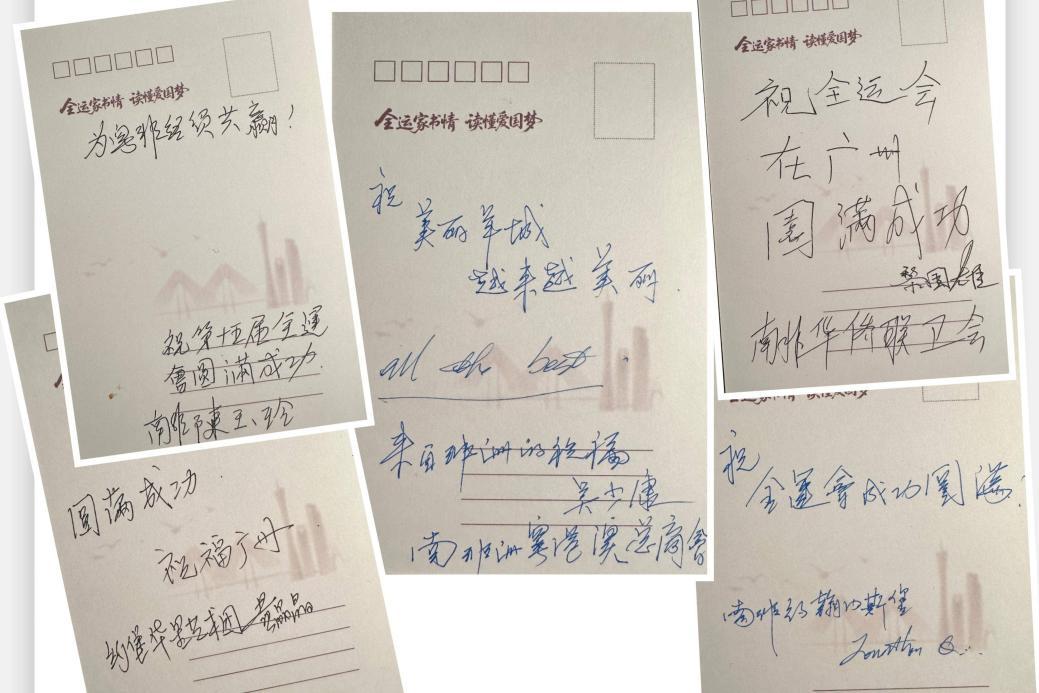 全运家书情 读懂爱国梦
为粤非经贸共赢!
祝第十五届全運
會圆滿成功.
南非陳玉玲
全运家书情 读懂爱国梦
祝
美丽羊城
越来越美丽.
all the best.
来自非洲的祝福
吴少康
南部非洲粤港澳总商會
全运家书情 读懂爱国梦
祝全运会
在广州
圆滿成功
南非华侨联卫会
圆满成功.
祝福广州
全运家书情 读懂爱国梦
祝
全運會成功圓滿!
南非约翰内斯堡
Jonathan